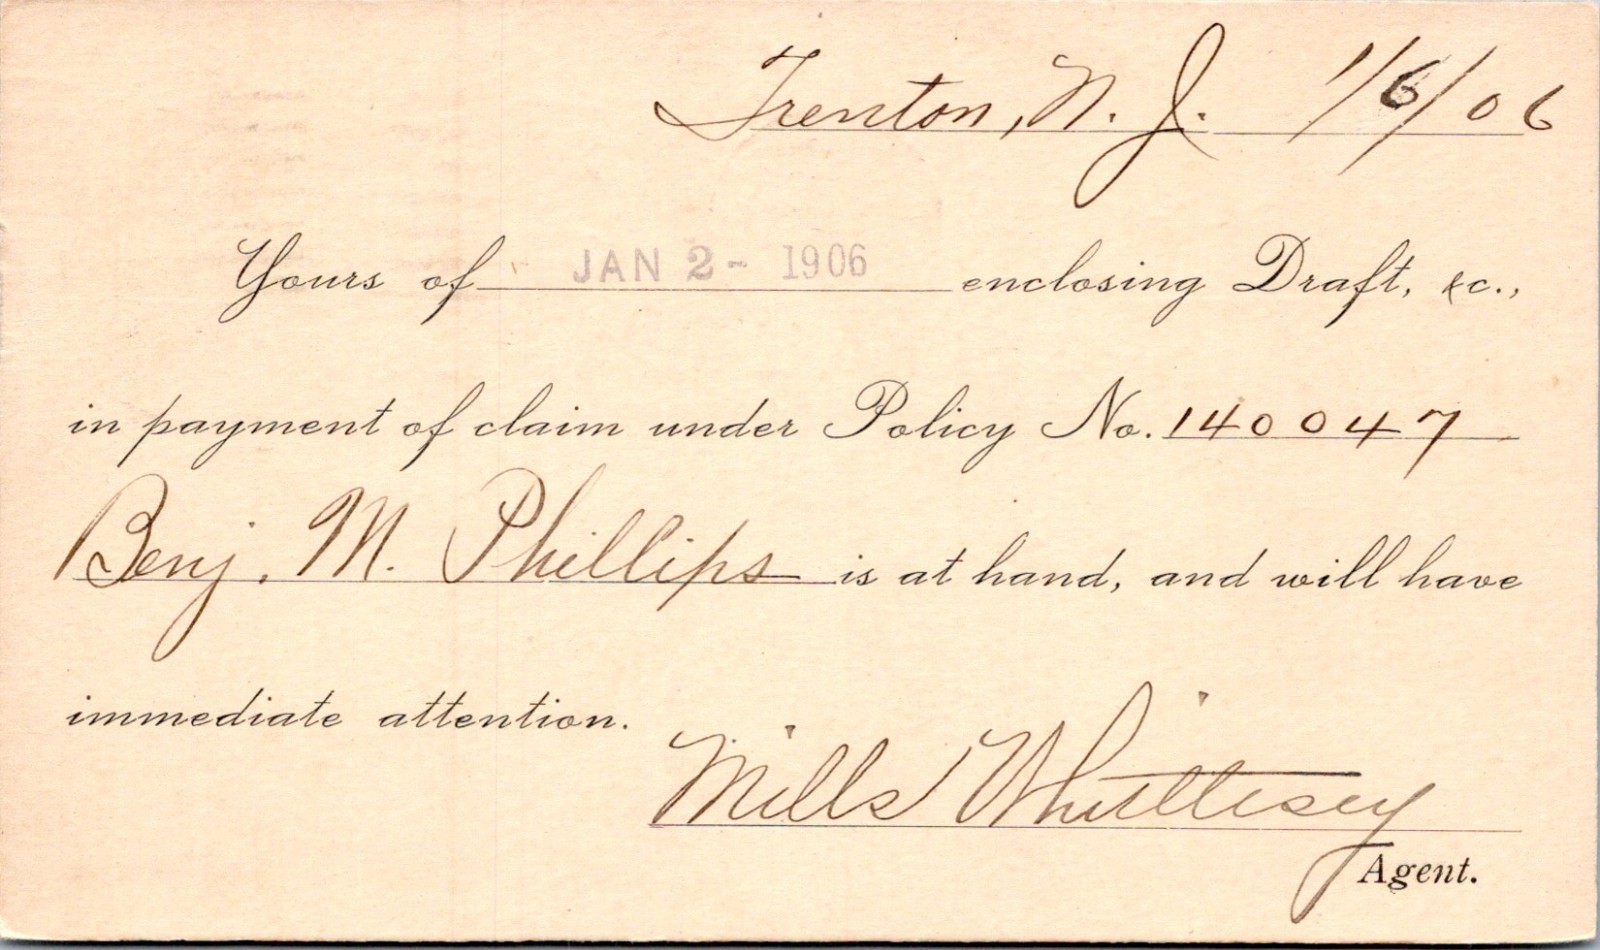 Trenton, N. J. 1/6/06
Yours of JAN 2- 1906 enclosing Draft, &c.,
in payment of claim under Policy No. 140047
Benj. M. Phillips is at hand, and will have
immediate attention.
Mills Whittlesey
Agent.